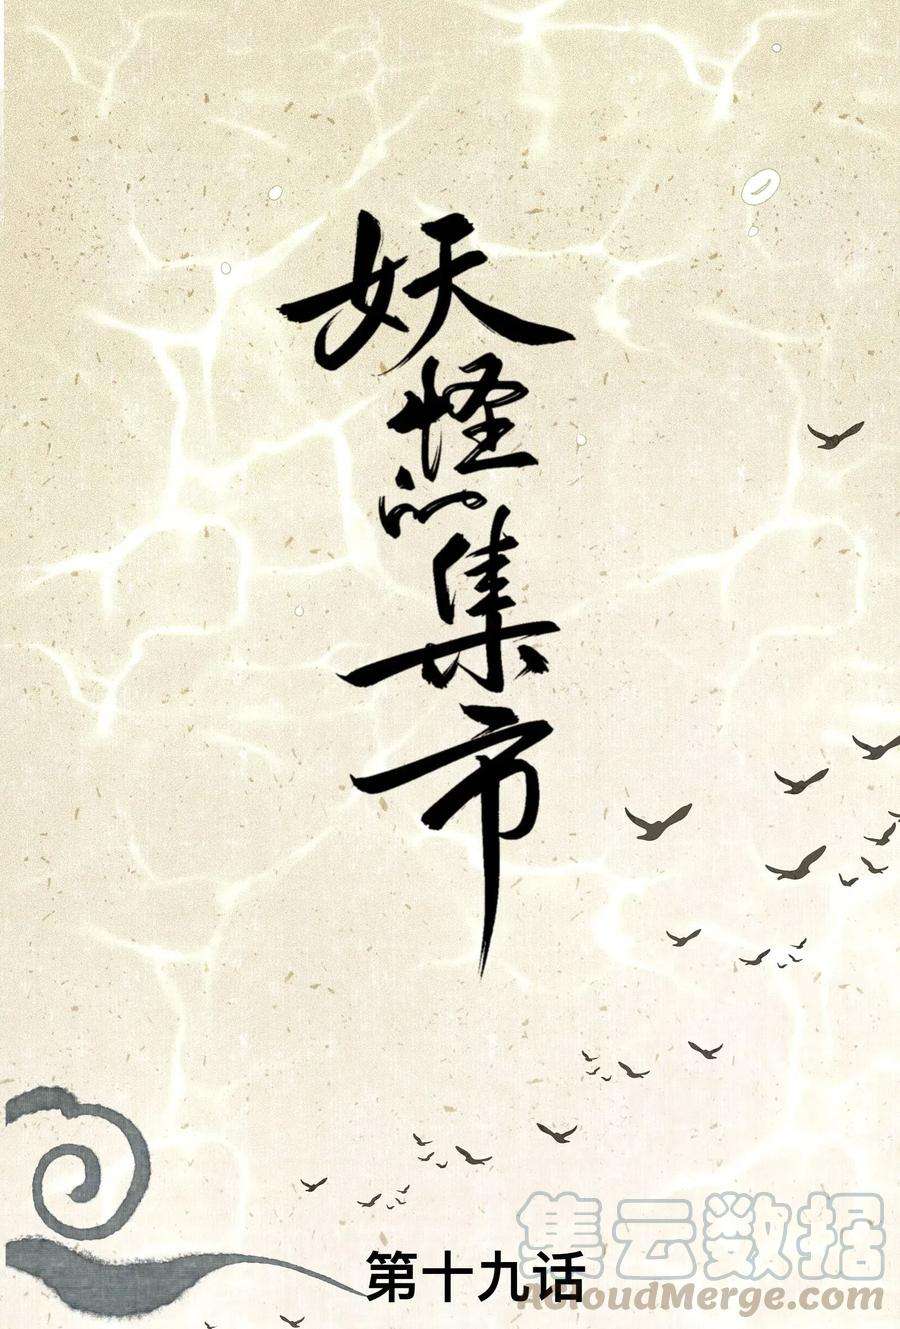 妖怪的集市
第十九话
集云数据
AcloudMerge.com